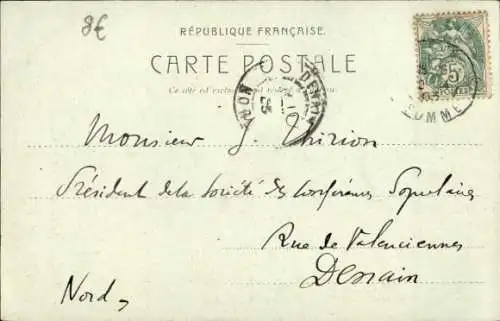 8€
RÉPUBLIQUE FRANÇAISE.
CARTE POSTALE
Ce côté est exclusivement réservé à l'adresse.
DENAIN
NORD
SOMME
5
Monsieur J. Thirion
Président de la Société des Conférences Populaires
Rue de Valenciennes
Denain
Nord